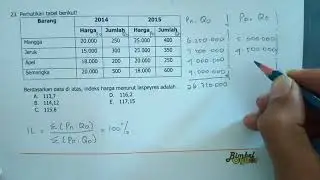 23. Perhatikan tabel berikut!
Barang 2014 2015
Harga Jumlah Harga Jumlah
Mangga 20.000 250 25.000 400
Jeruk 15.000 300 25.000 350
Apel 18.000 200 20.000 250
Semangka 20.000 500 18.000 600
Berdasarkan data di atas, indeks harga menurut laspeyres adalah
A. 113,7 D. 116,2
B. 114,12 E. 117,15
C. 115,8
IL = Σ(Pn.Q0) × 100%
Σ(P0.Q0)
Pn.Q0 P0.Q0
6.250.000 5.000.000
7.500.000 4.500.000
4.000.000
9.000.000
26.750.000
Bimbel